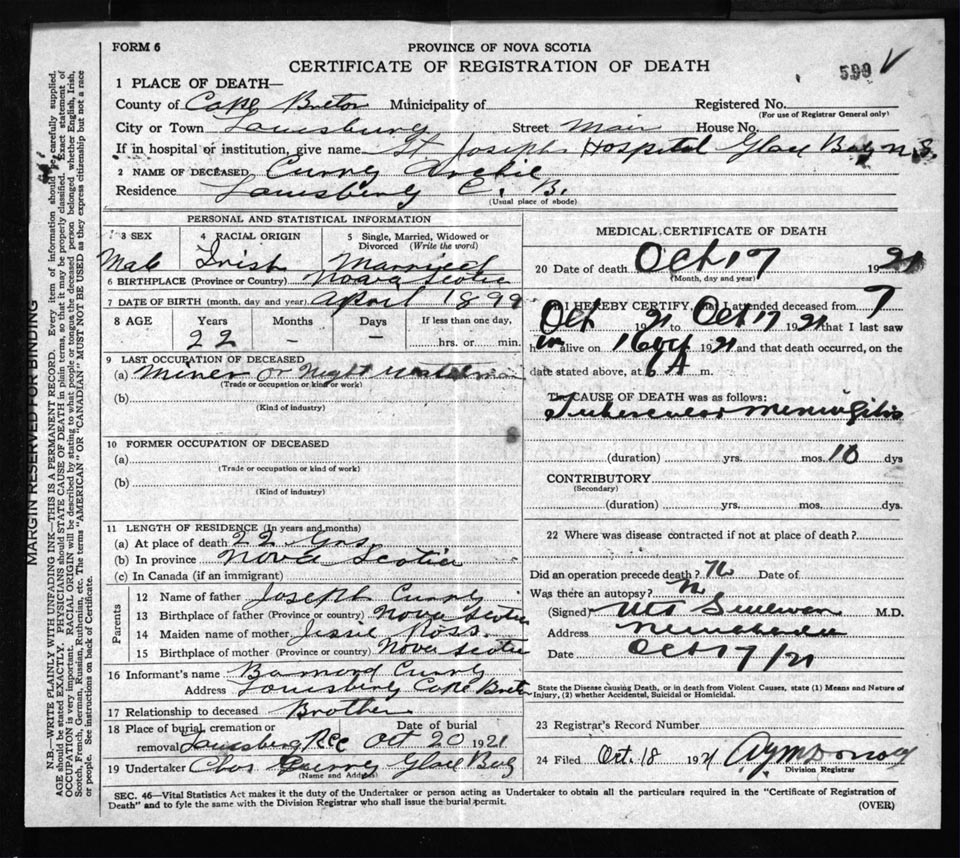 FORM 6
PROVINCE OF NOVA SCOTIA
CERTIFICATE OF REGISTRATION OF DEATH
599
1 PLACE OF DEATH—
County of Cape Breton Municipality of Registered No.
(For use of Registrar General only)
City or Town Louisburg Street Main House No.
If in hospital or institution, give name St Joseph Hospital Glace Bay N.S.
2 NAME OF DECEASED Curry Archie
Residence Louisburg C. B.
(Usual place of abode)
PERSONAL AND STATISTICAL INFORMATION
3 SEX 4 RACIAL ORIGIN 5 Single, Married, Widowed or Divorced (Write the word)
Male Irish Married
6 BIRTHPLACE (Province or Country) Nova Scotia
7 DATE OF BIRTH (month, day and year) April 1899
8 AGE Years Months Days If less than one day,
22 - - hrs. or min.
9 LAST OCCUPATION OF DECEASED
(a) Miner or Night
(Trade or occupation or kind of work)
(b)
(Kind of industry)
10 FORMER OCCUPATION OF DECEASED
(a)
(Trade or occupation or kind of work)
(b)
(Kind of industry)
11 LENGTH OF RESIDENCE (In years and months)
(a) At place of death 22 yrs.
(b) In province Nova Scotia
(c) In Canada (if an immigrant)
Parents
12 Name of father Joseph Curry
13 Birthplace of father (Province or country) Nova Scotia
14 Maiden name of mother Jessie Ross
15 Birthplace of mother (Province or country) Nova Scotia
16 Informant's name Curry
Address Louisburg Cape Breton
17 Relationship to deceased Brother
18 Place of burial, cremation or removal Date of burial
Louisburg Oct 20 1921
19 Undertaker Chas Curry Glace Bay
(Name and Address)
MEDICAL CERTIFICATE OF DEATH
20 Date of death Oct 17 1921
(Month, day and year)
I HEREBY CERTIFY, that I attended deceased from 7
Oct 1921 to Oct 17 1921 that I last saw
him alive on 16 Oct 1921 and that death occurred, on the
date stated above, at 6 A m.
The CAUSE OF DEATH was as follows:
Tubercular Meningitis
(duration) yrs. mos. 10 dys
CONTRIBUTORY
(Secondary)
(duration) yrs. mos. dys.
22 Where was disease contracted if not at place of death?
Did an operation precede death? No Date of
Was there an autopsy? No
(Signed) M.D.
Address
Date Oct 17/21
State the Disease causing Death, or in death from Violent Causes, state (1) Means and Nature of
Injury, (2) whether Accidental, Suicidal or Homicidal.
23 Registrar's Record Number
24 Filed Oct. 18 1921
Division Registrar
SEC. 46—Vital Statistics Act makes it the duty of the Undertaker or person acting as Undertaker to obtain all the particulars required in the "Certificate of Registration of
Death" and to fyle the same with the Division Registrar who shall issue the burial permit.
(OVER)
MARGIN RESERVED FOR BINDING
N.B.—WRITE PLAINLY WITH UNFADING INK—THIS IS A PERMANENT RECORD. Every item of information should be carefully supplied.
AGE should be stated EXACTLY. PHYSICIANS should STATE CAUSE OF DEATH in plain terms, so that it may be properly classified. Exact statement of
OCCUPATION is very important. RACIAL ORIGIN will be described by stating to what people or tongue the deceased person belonged whether English, Irish,
Scotch, French, German, Russian, Ruthenian, etc. The terms "AMERICAN" or "CANADIAN" MUST NOT BE USED as they express citizenship but not a race
or people. See instructions on back of Certificate.